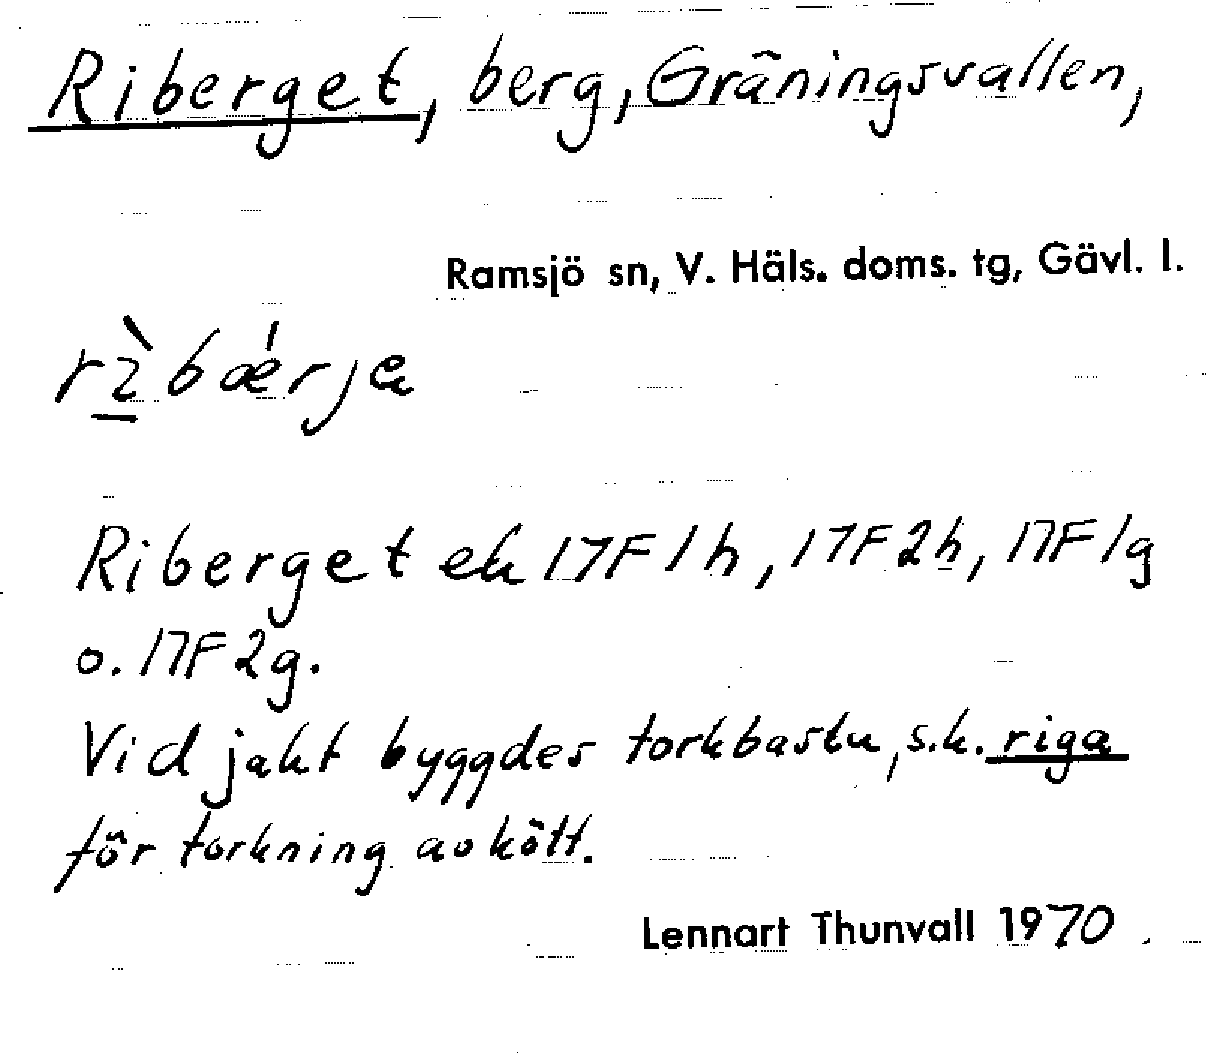 Riberget, berg, Gräningsvallen,
Ramsjö sn, V. Häls. doms. tg, Gävl. l.
rìbǽrja
Riberget ek 17F1h, 17F2h, 17F1g
o. 17F2g.
Vid jakt byggdes torkbastu, s.k. riga
för torkning av kött.
Lennart Thunvall 1970